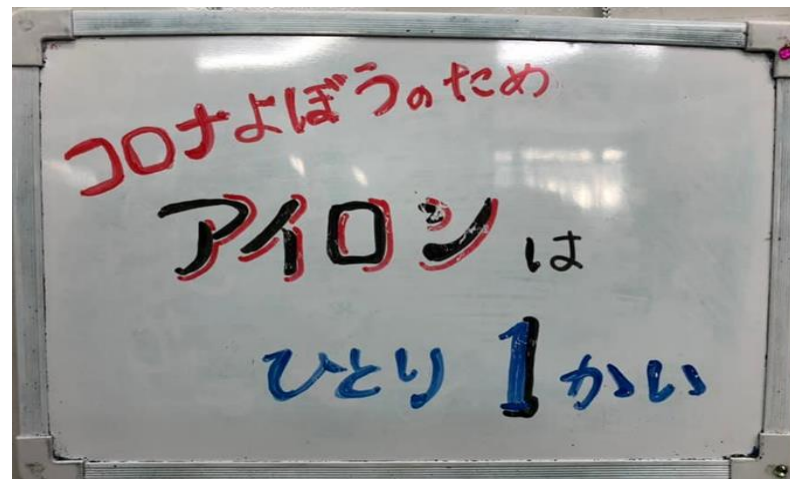 コロナよぼうのため
アイロンは
ひとり1かい